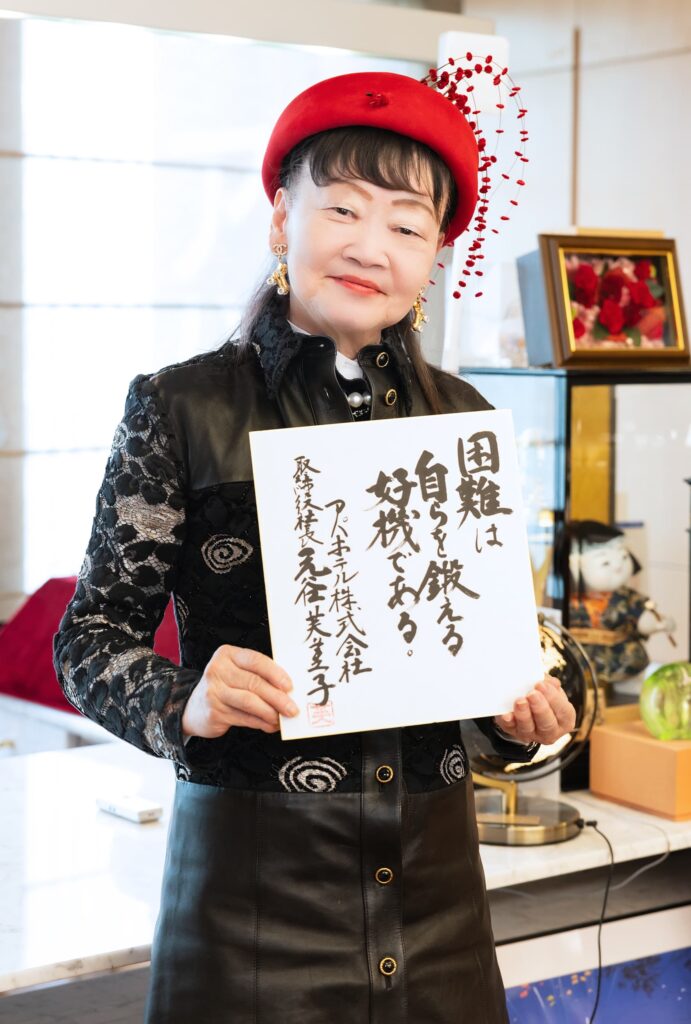 困難は
自らを鍛える
好機である。
アパホテル株式会社
取締役社長 元谷芙美子